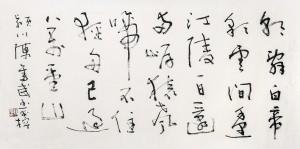 朝辭白帝
彩雲間千里
江陵一日還
兩岸猿聲
啼不住
輕舟已過
萬重山
川陳